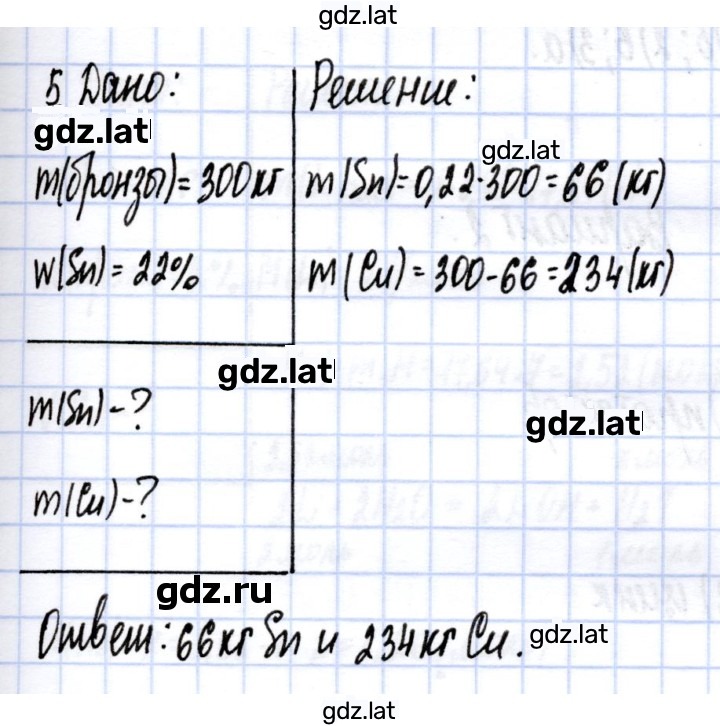 gdz.lat
5 Дано:
gdz.lat
m(бронзы)=300кг
w(Sn)=22%
Решение:
gdz.lat
m(Sn)=0,22·300=66(кг)
m(Cu)=300-66=234(кг)
gdz.lat
m(Sn)-?
gdz.lat
m(Cu)-?
gdz.ru
Ответ: 66кг Sn и 234кг Cu.
gdz.lat
gdz.lat